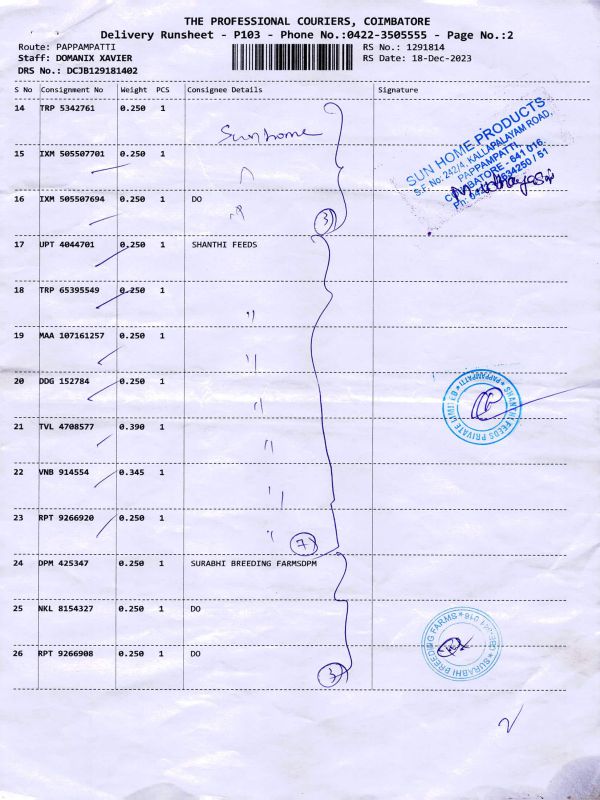 THE PROFESSIONAL COURIERS, COIMBATORE
Delivery Runsheet - P103 - Phone No.:0422-3505555 - Page No.:2
Route: PAPPAMPATTI RS No.: 1291814
Staff: DOMANIX XAVIER RS Date: 18-Dec-2023
DRS No.: DCJB129181402
S No Consignment No Weight PCS Consignee Details Signature
14 TRP 5342761 0.250 1 Sunhome
15 IXM 505507701 0.250 1 "
16 IXM 505507694 0.250 1 DO "
3
SUN HOME PRODUCTS
S.F. No: 242/4, KALLAPALAYAM ROAD,
PAPPAMPATTI,
COIMBATORE - 641 016.
17 UPT 4044701 0.250 1 SHANTHI FEEDS
18 TRP 65395549 0.250 1 "
19 MAA 107161257 0.250 1 "
20 DDG 152784 0.250 1 "
21 TVL 4708577 0.390 1 "
22 VNB 914554 0.345 1 "
23 RPT 9266920 0.250 1 "
7
SHANTHI FEEDS PRIVATE LIMITED
* PAPPAMPATTI *
24 DPM 425347 0.250 1 SURABHI BREEDING FARMSDPM
25 NKL 8154327 0.250 1 DO
26 RPT 9266908 0.250 1 DO
3
* SURABHI BREEDING FARMS *
2